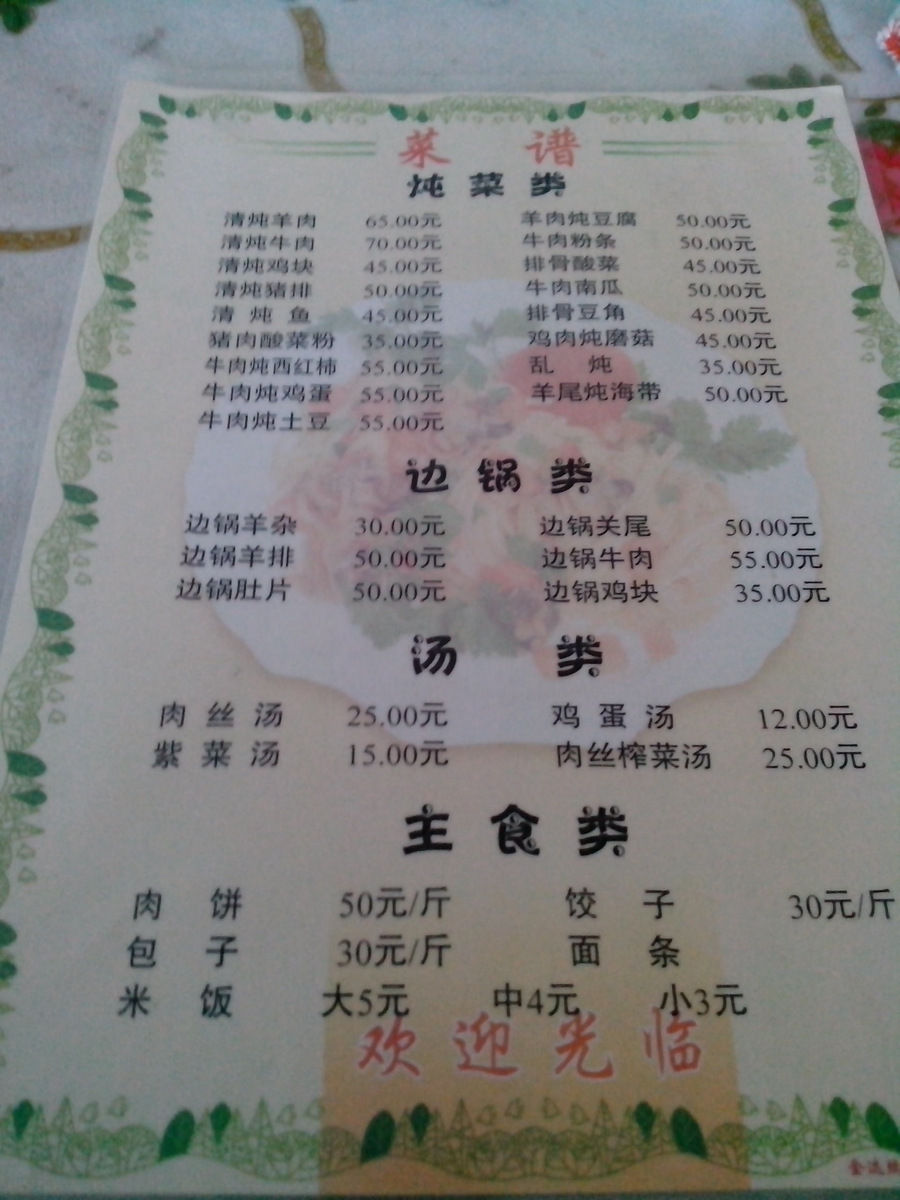 菜 谱
炖菜类
清炖羊肉 65.00元 羊肉炖豆腐 50.00元
清炖牛肉 70.00元 牛肉粉条 50.00元
清炖鸡块 45.00元 排骨酸菜 45.00元
清炖猪排 50.00元 牛肉南瓜 50.00元
清炖鱼 45.00元 排骨豆角 45.00元
猪肉酸菜粉 35.00元 鸡肉炖磨菇 45.00元
牛肉炖西红柿 55.00元 乱炖 35.00元
牛肉炖鸡蛋 55.00元 羊尾炖海带 50.00元
牛肉炖土豆 55.00元
边锅类
边锅羊杂 30.00元 边锅关尾 50.00元
边锅羊排 50.00元 边锅牛肉 55.00元
边锅肚片 50.00元 边锅鸡块 35.00元
汤 类
肉丝汤 25.00元 鸡蛋汤 12.00元
紫菜汤 15.00元 肉丝榨菜汤 25.00元
主食类
肉饼 50元/斤 饺子 30元/斤
包子 30元/斤 面条
米饭 大5元 中4元 小3元
欢迎光临